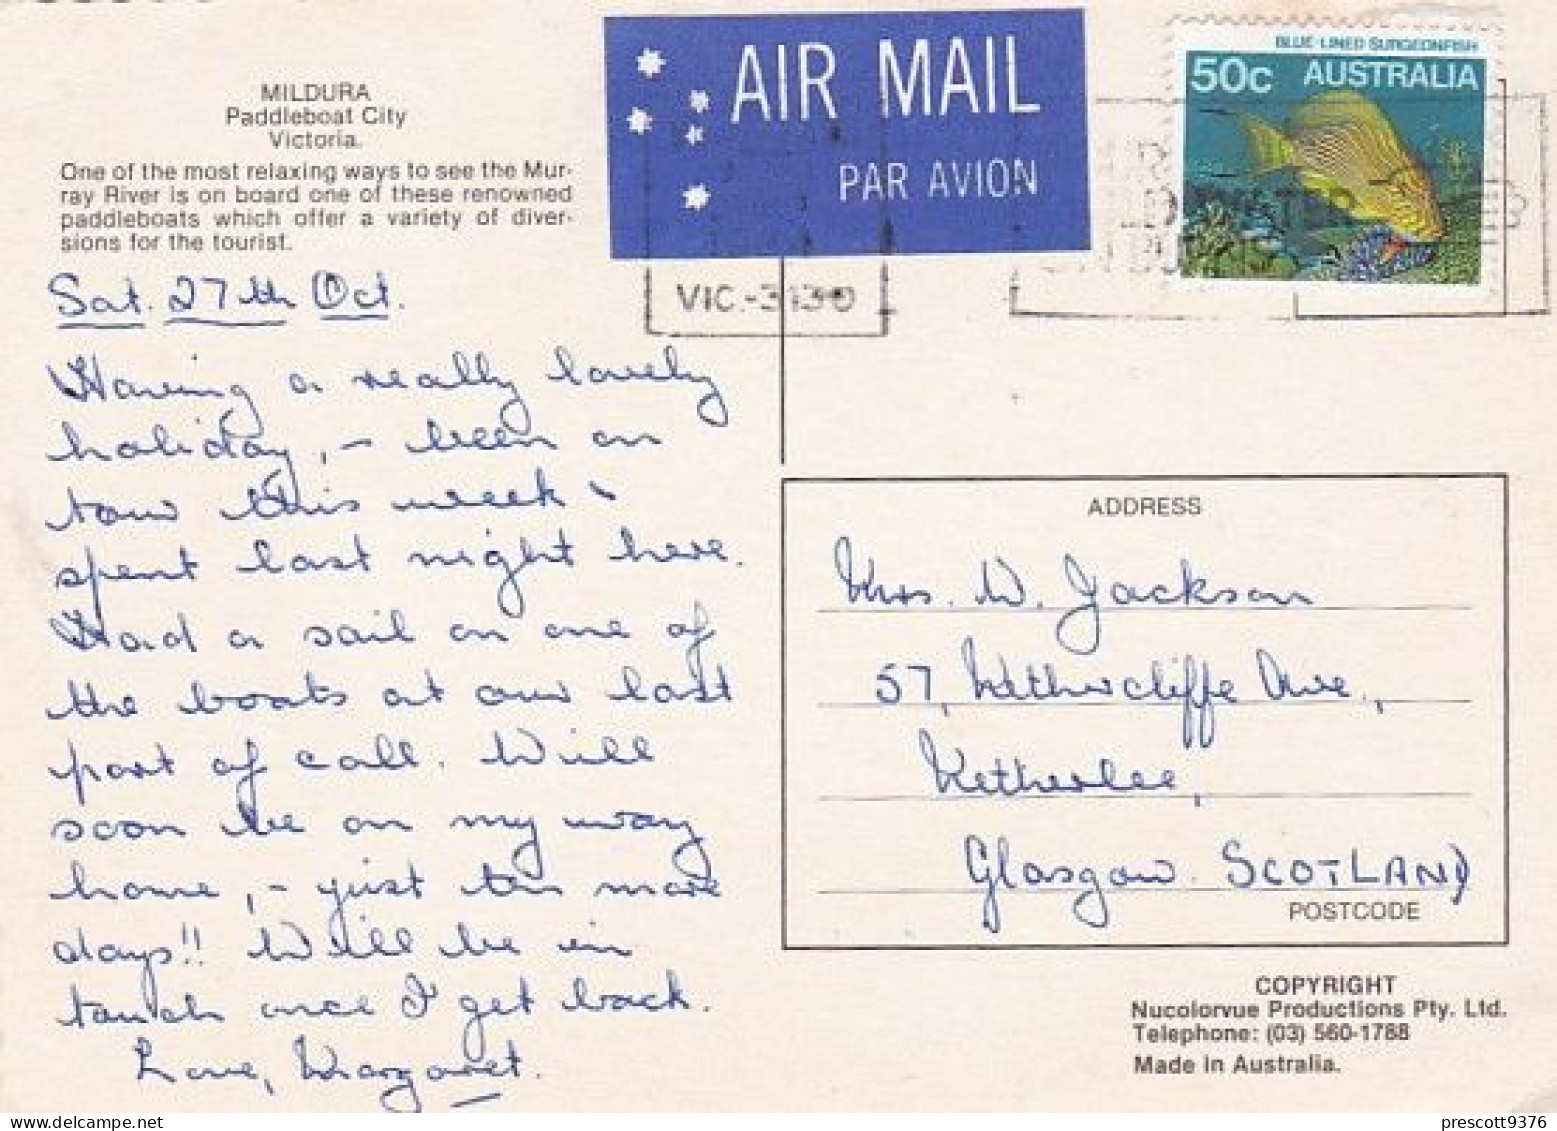 MILDURA
Paddleboat City
Victoria.
One of the most relaxing ways to see the Mur-
ray River is on board one of these renowned
paddleboats which offer a variety of diver-
sions for the tourist.
Sat. 27th Oct.
Having a really lovely
holiday, - been on
tour this week &
spent last night here.
Had a sail on one of
the boats at our last
port of call. Will
soon be on my way
home, - just ten more
days!! Will be in
touch once I get back.
Love, Margaret.
AIR MAIL
PAR AVION
VIC.-3130
BLUE-LINED SURGEONFISH
50c AUSTRALIA
ADDRESS
Mrs. W. Jackson
57, Nethercliffe Ave.,
Netherlee,
Glasgow. SCOTLAND
POSTCODE
COPYRIGHT
Nucolorvue Productions Pty. Ltd.
Telephone: (03) 560-1788
Made in Australia.
prescott9376